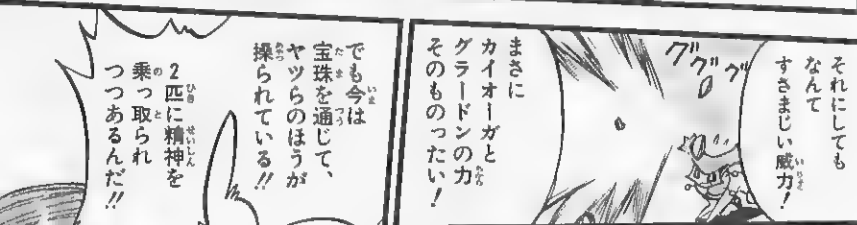 それにしても
なんて
すさまじい威力!
ググググ
まさに
カイオーガと
グラードンの力
そのものったい!
でも今は
宝珠を通じて、
ヤツらのほうが
操られている!!
2匹に精神を
乗っ取られ
つつあるんだ!!